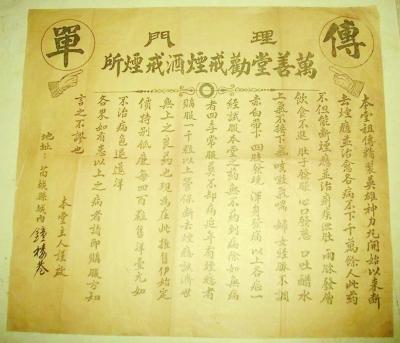 傳單
理門
萬善堂勸戒煙酒戒煙所
本堂祖傳精製英雄神力丸開始以來斷
去煙癮並治愈各病不下千萬餘人此药
不但能斷煙癮並治男疾
飲食不進 肚子發脹 心口發悶 口吐酸水
上氣不接下氣 咳嗽氣喘 婦女經脉不調
赤白帶下 四肢發現 渾身發痛 以上各症一
經試服本堂之药無不药到病除如無病
者四季常服莫不却病延年有煙癮者
購服一千粒以上管保斷去煙癮誠濟世
無上之良药也現為在此推售伊始定
價特別低廉每四百粒售洋壹元如
不治病包退還洋
各界如有患以上之病者請即購服方知
言之不謬也
本堂主人謹啟
地址 縣城內鐘樓巷